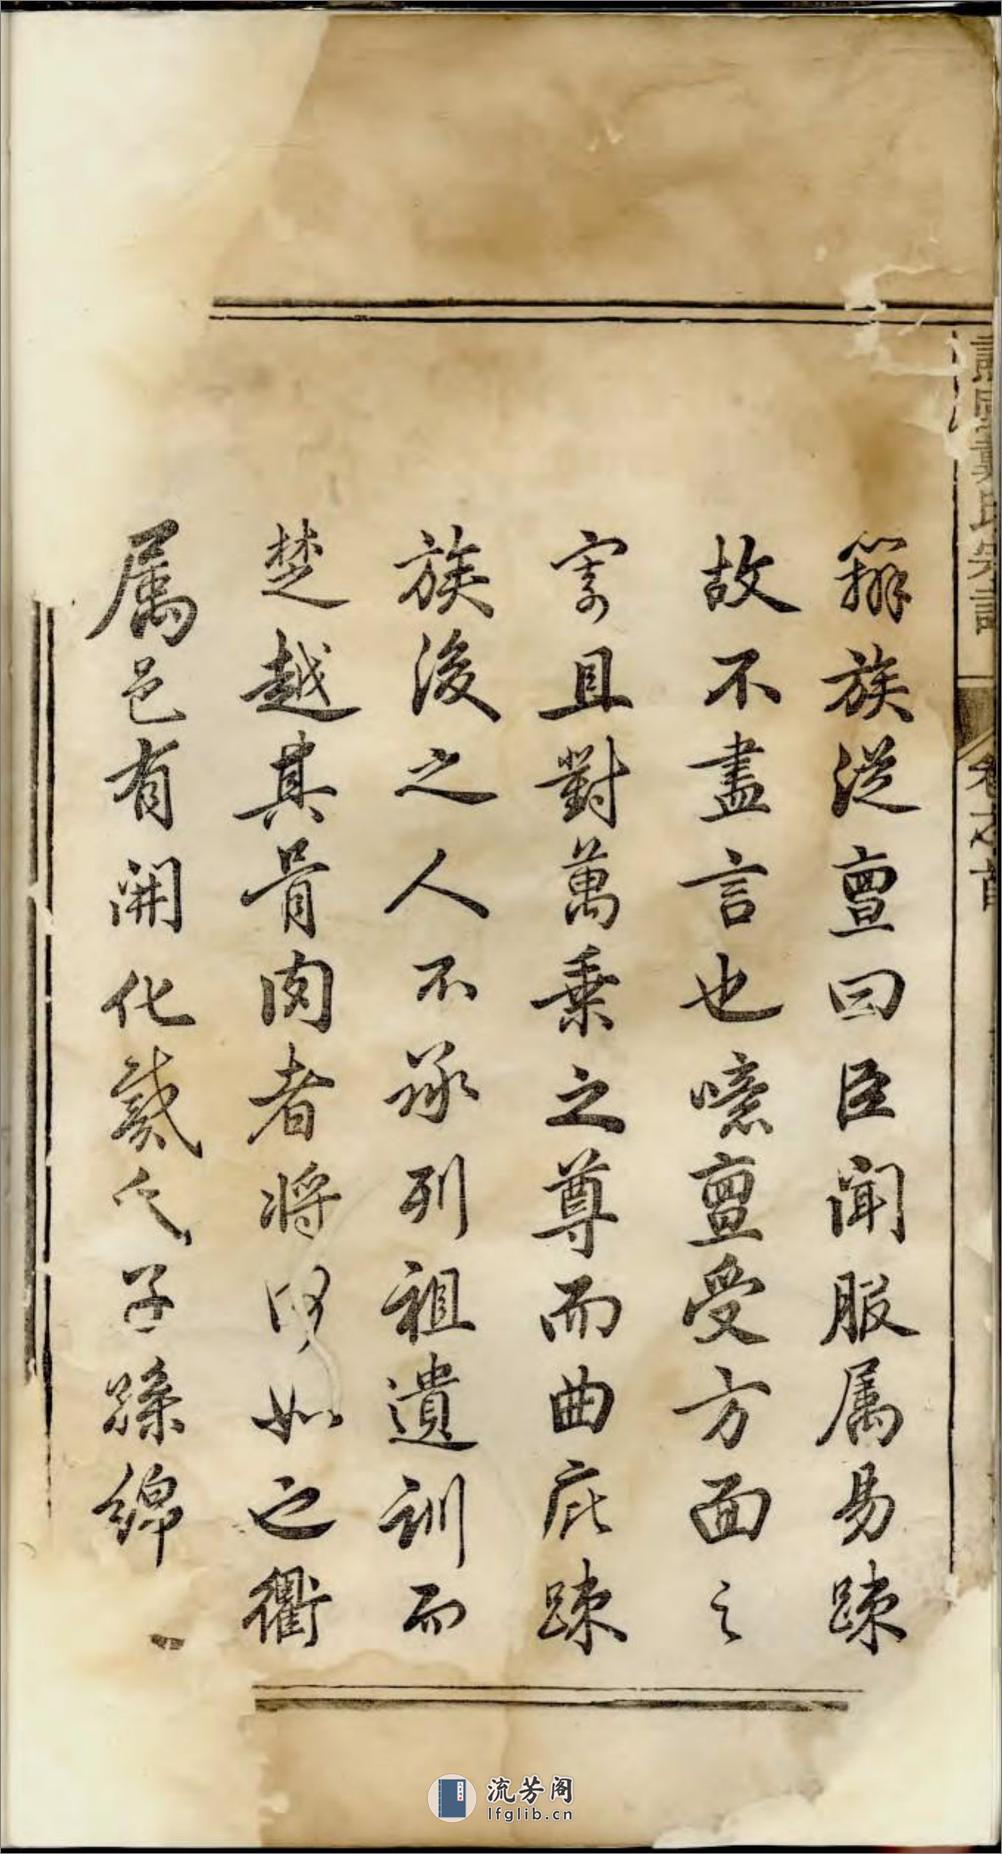 族從亶曰臣聞服属易疎
故不盡言也噫亶受方面之
寄且對萬乗之尊而曲庇疎
族後之人不承列祖遺訓而
楚越其骨肉者將何如之衢
属邑有開化戴氏子孫綿
氏宗譜
卷之首
流芳阁
lfglib.cn